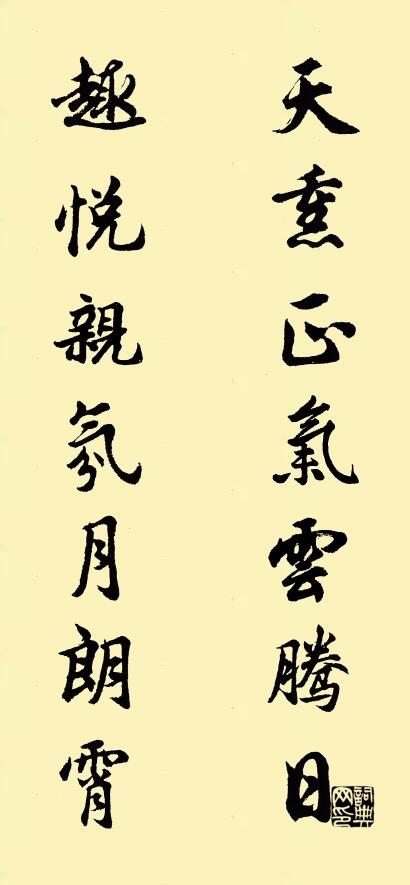 天熏正氣雲騰日
趣悦親氛月朗霄
詞典
网印